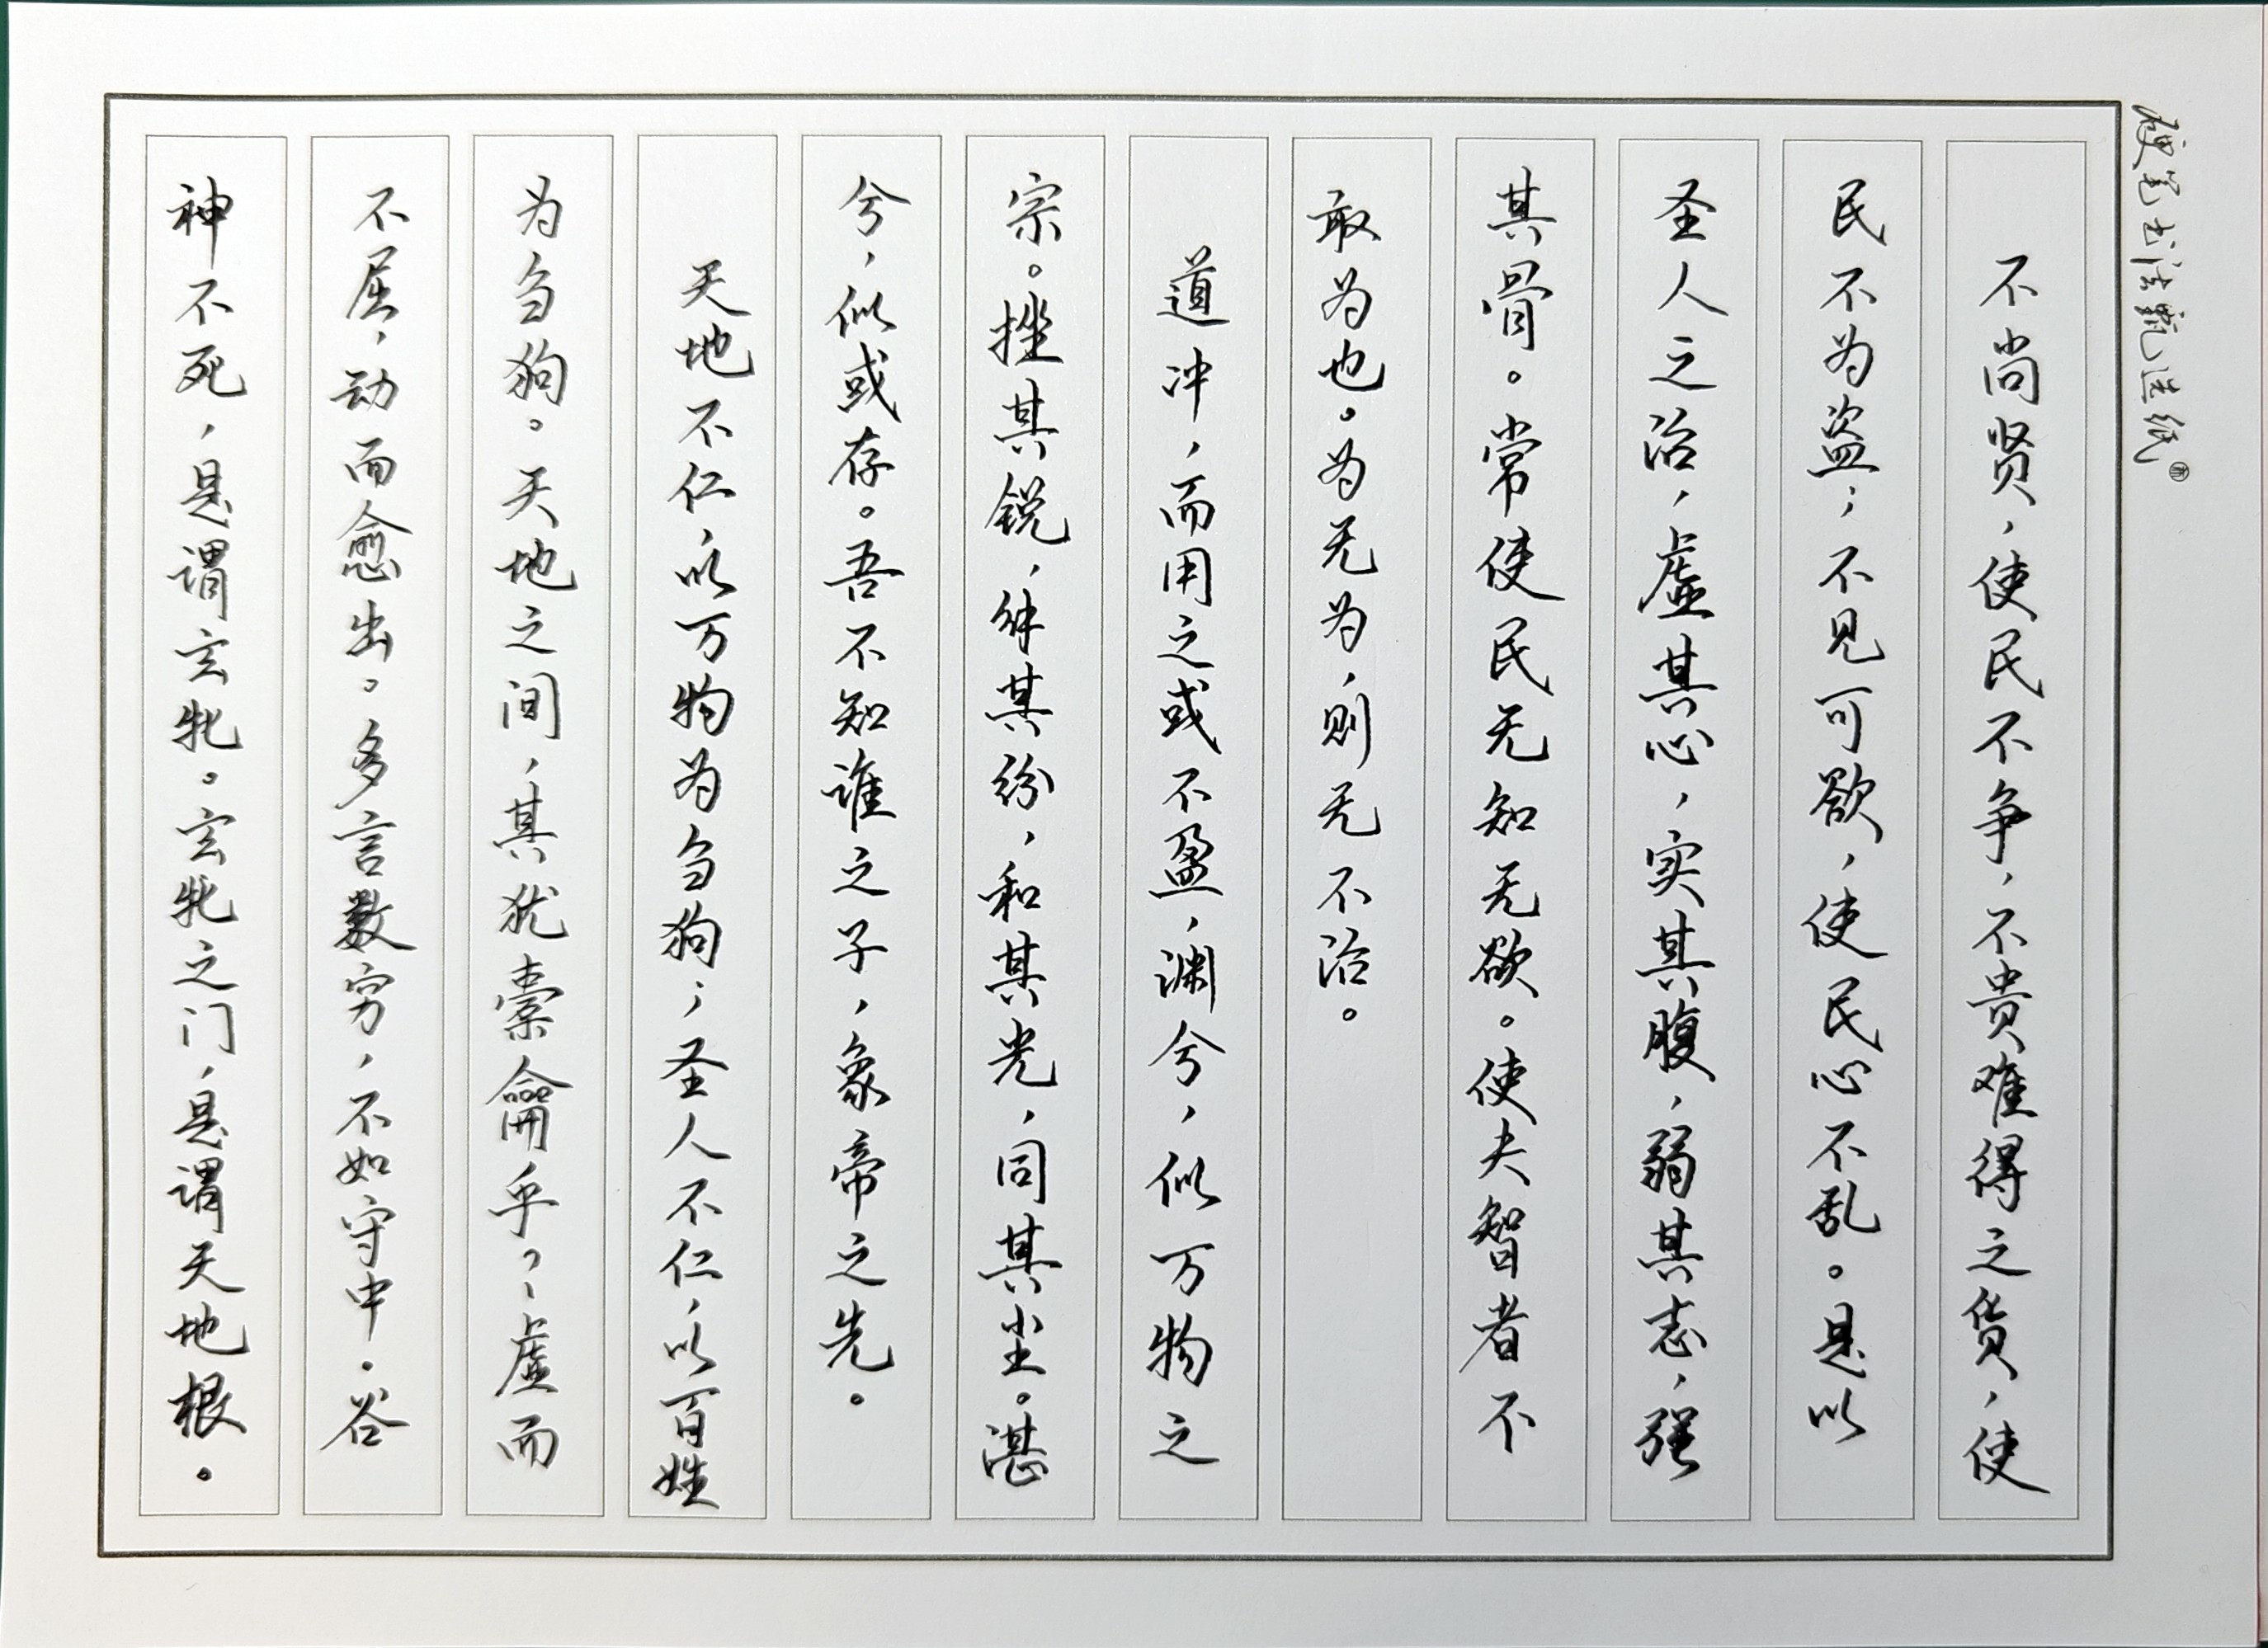 硬笔书法甄选纸
不尚贤，使民不争，不贵难得之货，使
民不为盗；不见可欲，使民心不乱。是以
圣人之治，虚其心，实其腹，弱其志，强
其骨。常使民无知无欲。使夫智者不
敢为也。为无为，则无不治。
道冲，而用之或不盈，渊兮，似万物之
宗。挫其锐，解其纷，和其光，同其尘。湛
兮，似或存。吾不知谁之子，象帝之先。
天地不仁，以万物为刍狗；圣人不仁，以百姓
为刍狗。天地之间，其犹橐龠乎？、虚而
不屈，动而愈出。多言数穷，不如守中。谷
神不死，是谓玄牝。玄牝之门，是谓天地根。